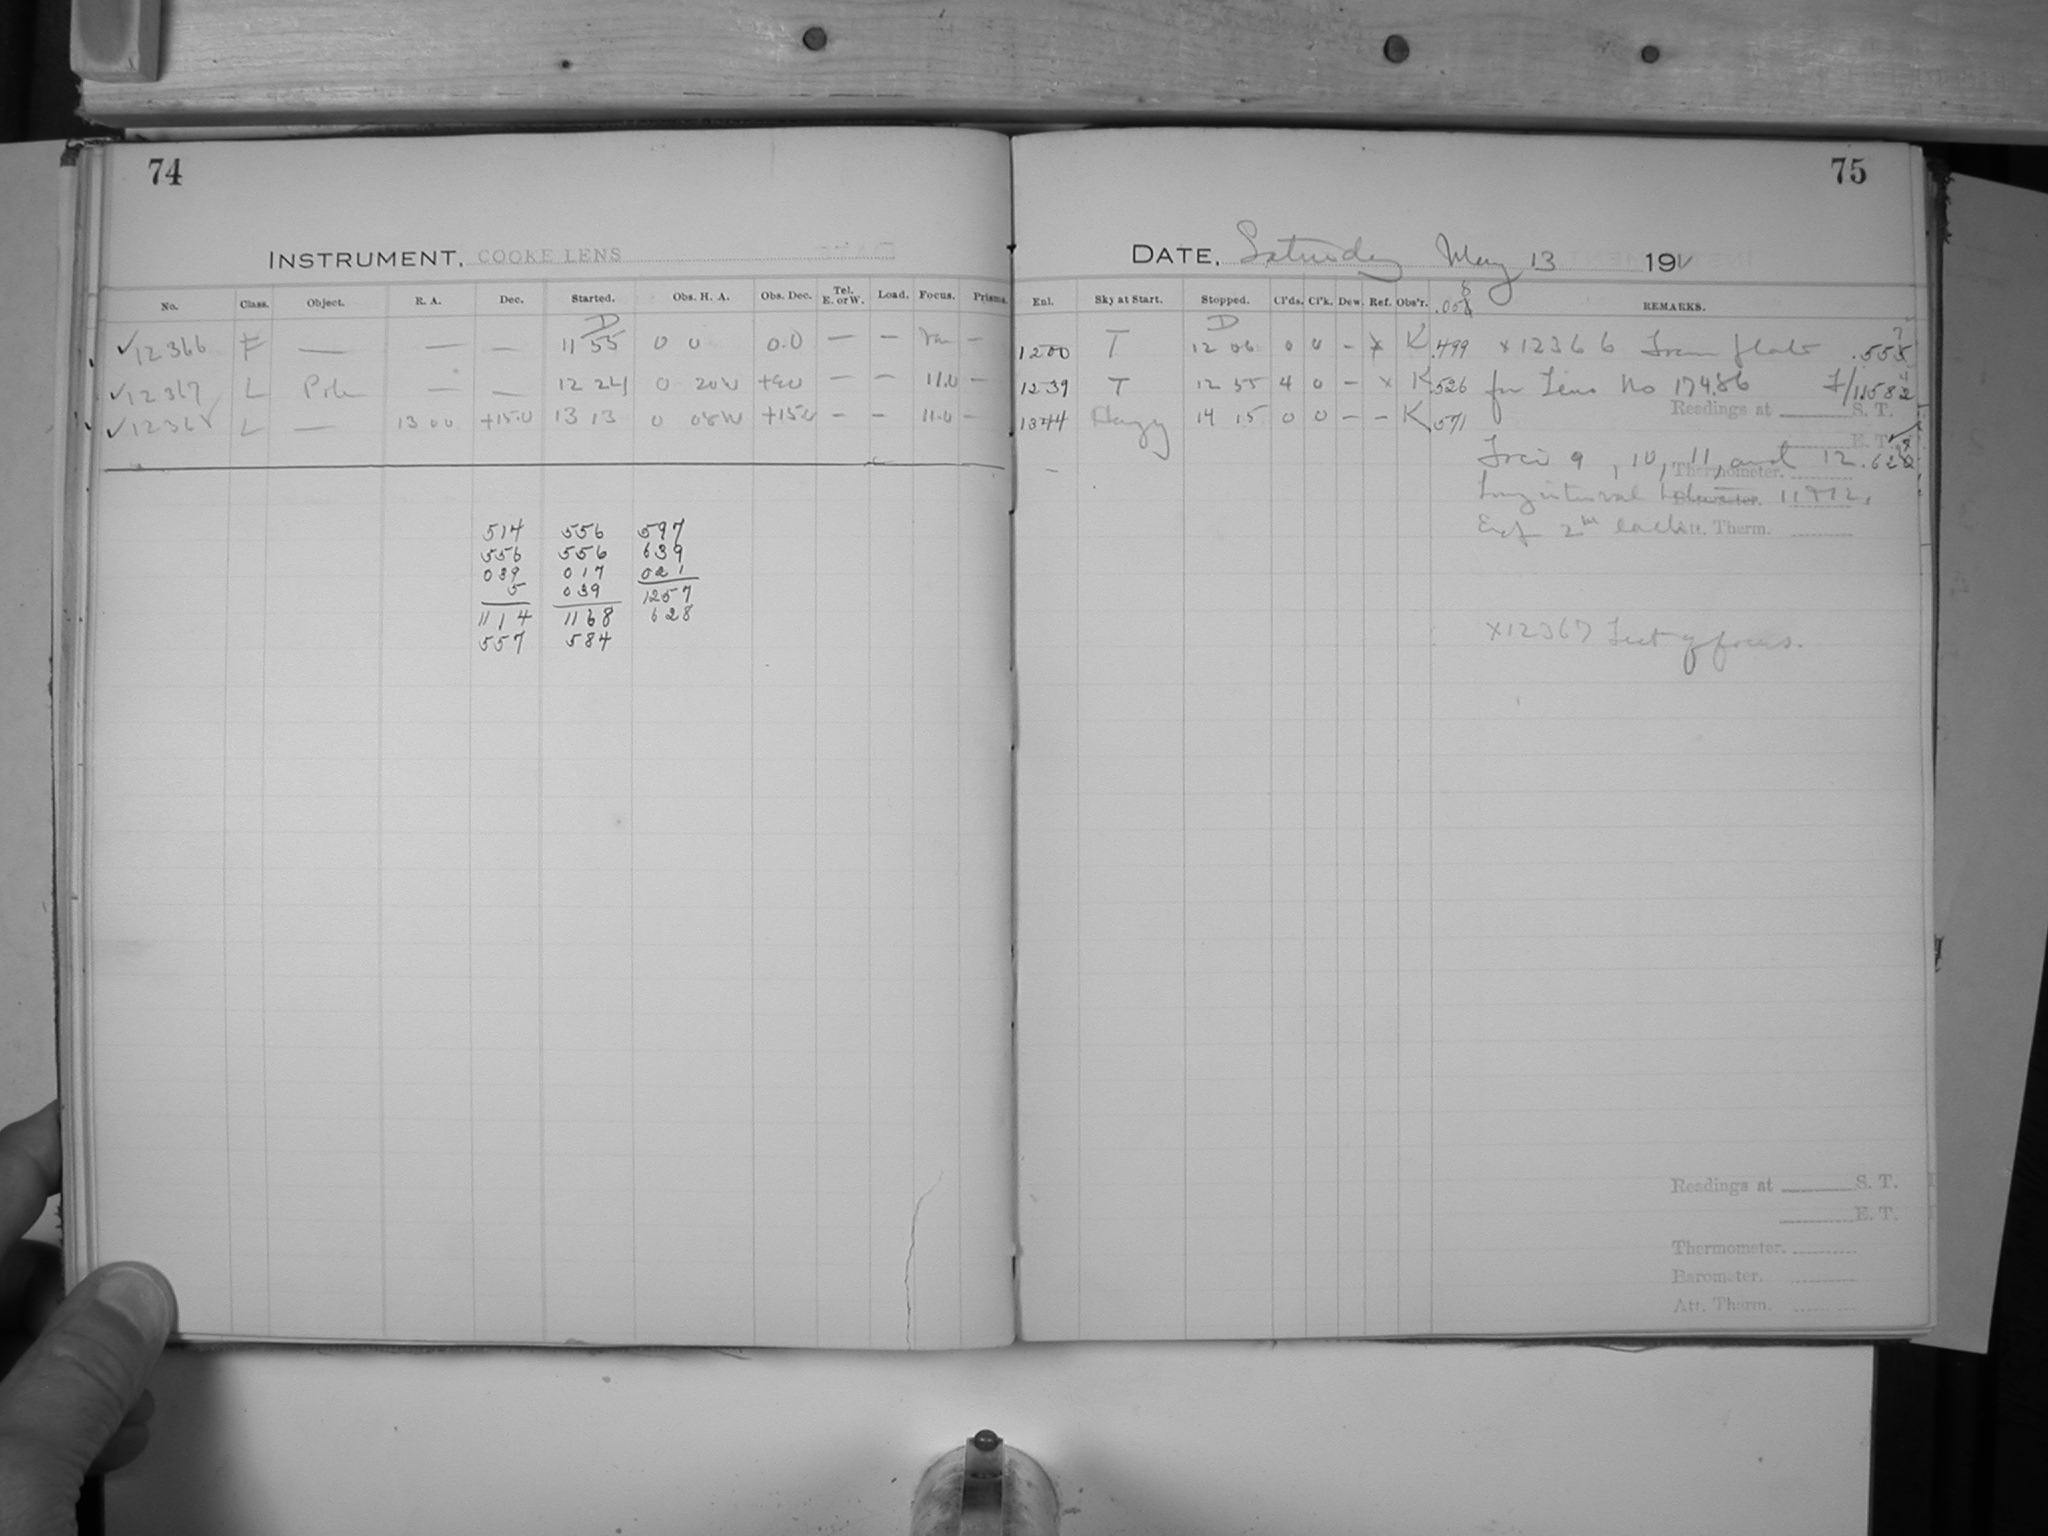 74
INSTRUMENT, COOKE LENS
No. Class. Object. R. A. Dec. Started. Obs. H. A. Obs. Dec. Tel. E. or W. Load. Focus. Prisms.
D
✓12366 F — — — 11 55 0 0 0.0 — — —
✓12367 L Pole — — 12 24 0 20W +90 — — 11.0 —
✓12368 L — 13 00 +15.0 13 13 0 08W +15.0 — — 11.0 —
514 556 597
556 556 639
039 017 021
5 039 1257
1114 1168 628
557 584
75
DATE, Saturday May 13 191
Enl. Sky at Start. Stopped. Cl'ds. Cl'k. Dew. Ref. Obs'r. REMARKS.
D
1200 T 12 06 0 0 — x K .499 x12366 from flats
1239 T 12 55 4 0 — x K .526 for Lens No 17486
1344 Hazy 14 15 0 0 — — K .571
Readings at S. T.
E. T.
Foci 9, 10, 11, and 12
Thermometer.
Long interval 11 & 12.
Exp 2m each Att. Therm.
x12367 Test of focus.
Readings at S. T.
E. T.
Thermometer.
Barometer.
Att. Therm.